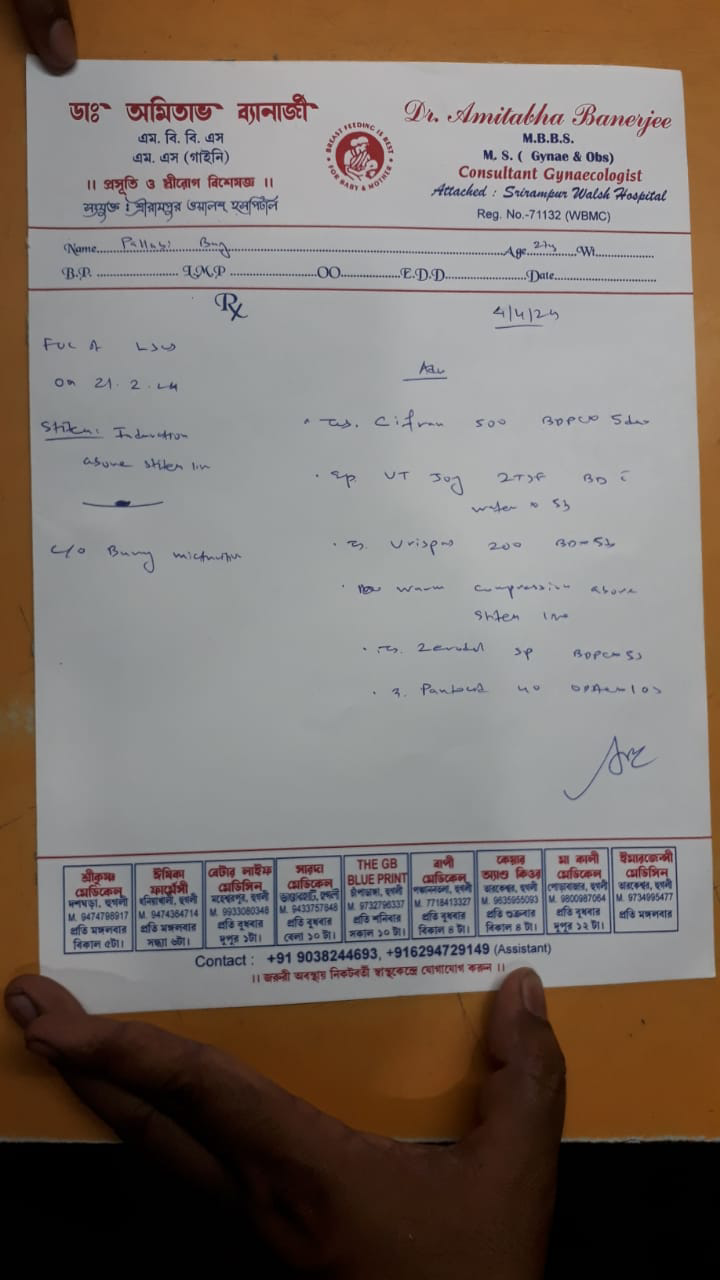 ডাঃ অমিতাভ ব্যানার্জী
এম. বি. বি. এস
এম. এস (গাইনি)
।। প্রসূতি ও স্ত্রীরোগ বিশেষজ্ঞ ।।
সংযুক্ত : শ্রীরামপুর ওয়ালশ হসপিটাল
BREAST FEEDING IS BEST
FOR BABY & MOTHER
Dr. Amitabha Banerjee
M.B.B.S.
M. S. ( Gynae & Obs)
Consultant Gynaecologist
Attached : Srirampur Walsh Hospital
Reg. No.-71132 (WBMC)
Name Age Wt
B.P. L.M.P OO E.D.D Date
Rx
4/4/24
Adv
on 21.2.24
Stitch: Induration
above stitch line
c/o Burning micturition
Cifran 500 BDPC 5d
Syp. UT Joy 2TSF BD c
water 5d
Urispas 200 BD 5d
warm compression above
stitch line
Zerodol SP BDPC 5d
40
শ্রীকৃষ্ণ
মেডিকেল
দশঘড়া, হুগলী
M. 9474798917
প্রতি মঙ্গলবার
বিকাল ৫টা।
ঈমিকা
ফার্মেসী
ধনিয়াখালী, হুগলী
M. 9474364714
প্রতি মঙ্গলবার
সন্ধ্যা ৬টা।
বেটার লাইফ
মেডিসিন
মহেশ্বরপুর, হুগলী
M. 9933080348
প্রতি বুধবার
দুপুর ১টা।
সারদা
মেডিকেল
হুগলী
M. 9433757848
প্রতি বুধবার
বেলা ১০ টা।
THE GB
BLUE PRINT
চাঁপাডাঙ্গা, হুগলী
M. 9732796337
প্রতি শনিবার
সকাল ১০ টা।
বাপী
মেডিকেল
হুগলী
M. 7718413327
প্রতি বুধবার
বিকাল ৪ টা।
কেয়ার
অ্যাণ্ড কিওর
তারকেশ্বর, হুগলী
M. 9635955093
প্রতি শুক্রবার
বিকাল ৪ টা।
মা কালী
মেডিকেল
তারকেশ্বর, হুগলী
M. 9800987064
প্রতি বুধবার
দুপুর ১২ টা।
ইমারজেন্সী
মেডিসিন
তারকেশ্বর, হুগলী
M. 9734995477
প্রতি মঙ্গলবার
Contact : +91 9038244693, +916294729149 (Assistant)
।। জরুরী অবস্থায় নিকটবর্তী স্বাস্থ্যকেন্দ্রে যোগাযোগ করুন ।।